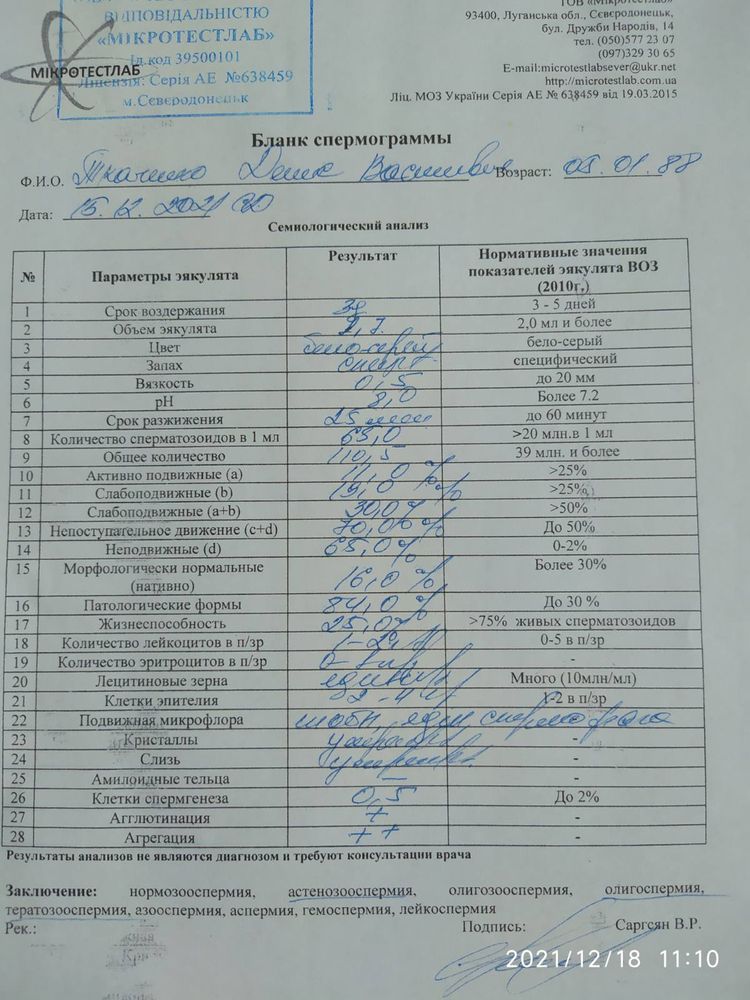 ВІДПОВІДАЛЬНІСТЮ
«МІКРОТЕСТЛАБ»
Ід.код 39500101
Ліцензія: Серія АЕ №638459
м.Сєвєродонецьк
МІКРОТЕСТЛАБ
ТОВ «Мікротестлаб»
93400, Луганська обл., Сєвєродонецьк,
бул. Дружби Народів, 14
тел. (050)577 23 07
(097)329 30 65
E-mail:microtestlabsever@ukr.net
http://microtestlab.com.ua
Ліц. МОЗ України Серія АЕ № 638459 від 19.03.2015
Бланк спермограммы
Ф.И.О. Ткаченко Денис Васильевич Возраст: 05.01.88
Дата: 15.12.2021
Семиологический анализ
№ Параметры эякулята Результат Нормативные значения показателей эякулята ВОЗ (2010г.)
1 Срок воздержания 3д 3 - 5 дней
2 Объем эякулята 2,0 мл и более
3 Цвет бело-серый бело-серый
4 Запах спец специфический
5 Вязкость 0,5 до 20 мм
6 pH 8,0 Более 7.2
7 Срок разжижения 25 мин до 60 минут
8 Количество сперматозоидов в 1 мл 65,0 >20 млн.в 1 мл
9 Общее количество 110,5 39 млн. и более
10 Активно подвижные (a) 11,0 % >25%
11 Слабоподвижные (b) 19,0 % >25%
12 Слабоподвижные (a+b) 30,0% >50%
13 Непоступательное движение (c+d) 70,0% До 50%
14 Неподвижные (d) 65,0% 0-2%
15 Морфологически нормальные (нативно) 16,0 % Более 30%
16 Патологические формы 84,0 % До 30 %
17 Жизнеспособность 25,0% >75% живых сперматозоидов
18 Количество лейкоцитов в п/зр 1-2 0-5 в п/зр
19 Количество эритроцитов в п/зр -
20 Лецитиновые зерна Много (10млн/мл)
21 Клетки эпителия 2-4 1-2 в п/зр
22 Подвижная микрофлора
23 Кристаллы -
24 Слизь -
25 Амилоидные тельца – -
26 Клетки спермгенеза 0,5 До 2%
27 Агглютинация + -
28 Агрегация ++ -
Результаты анализов не являются диагнозом и требуют консультации врача
Заключение: нормозооспермия, астенозооспермия, олигозооспермия, олигоспермия,
тератозооспермия, азооспермия, аспермия, гемоспермия, лейкоспермия
Рек.: Подпись: Саргсян В.Р.
2021/12/18 11:10